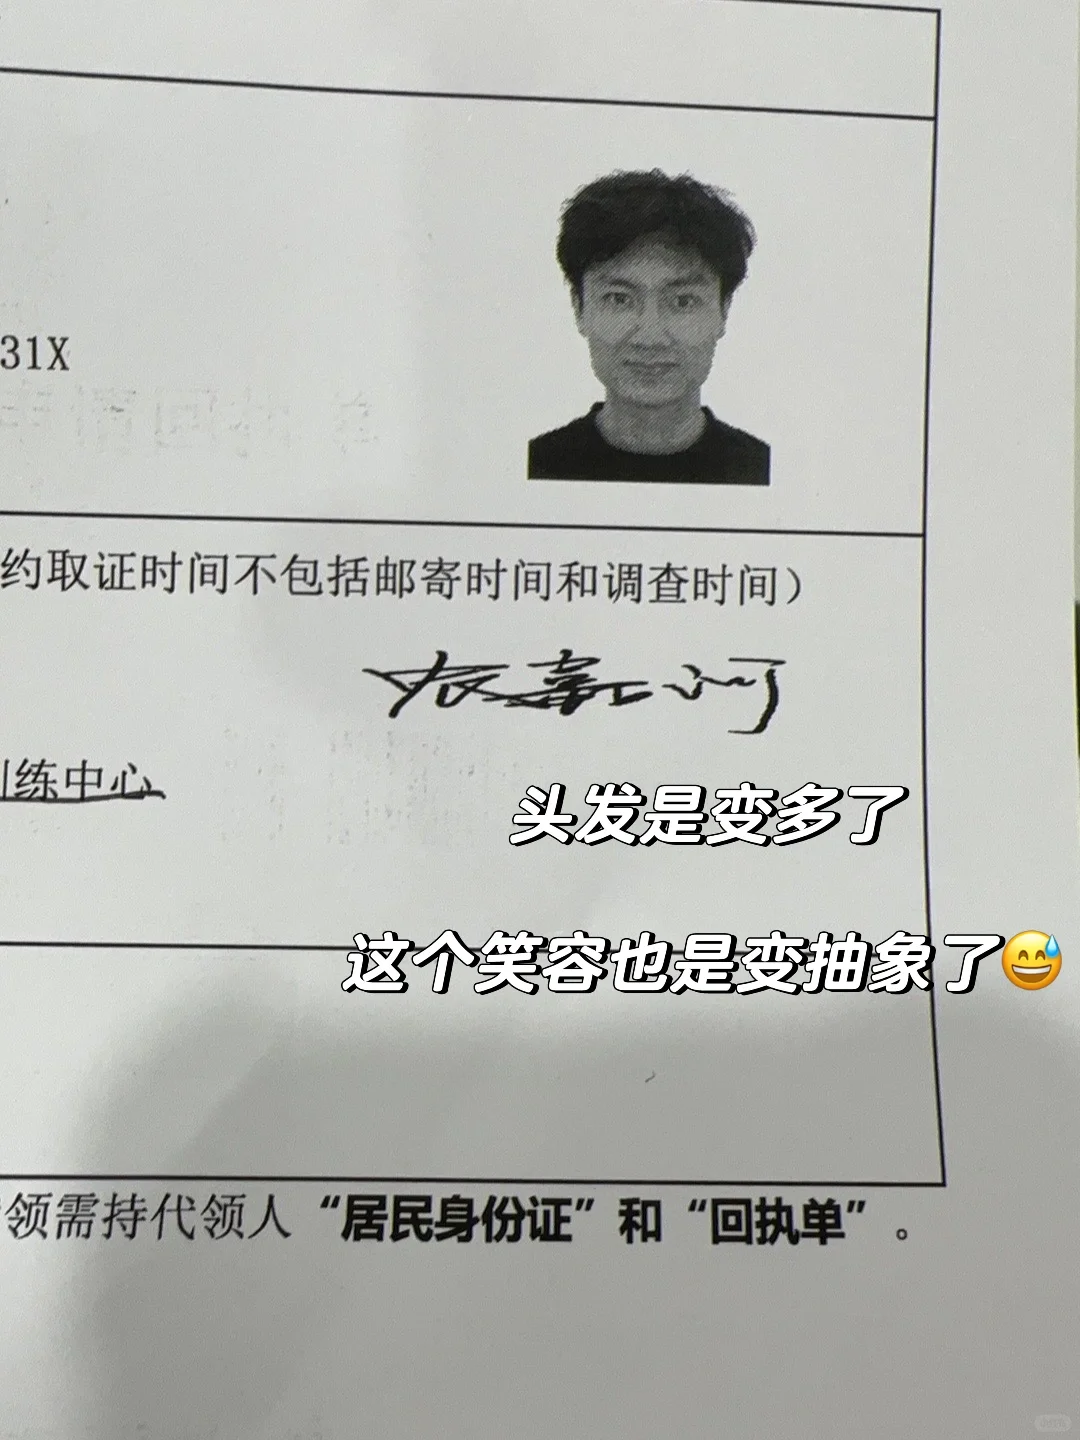 31X
约取证时间不包括邮寄时间和调查时间）
训练中心
头发是变多了
这个笑容也是变抽象了😅
领需持代领人“居民身份证”和“回执单”。